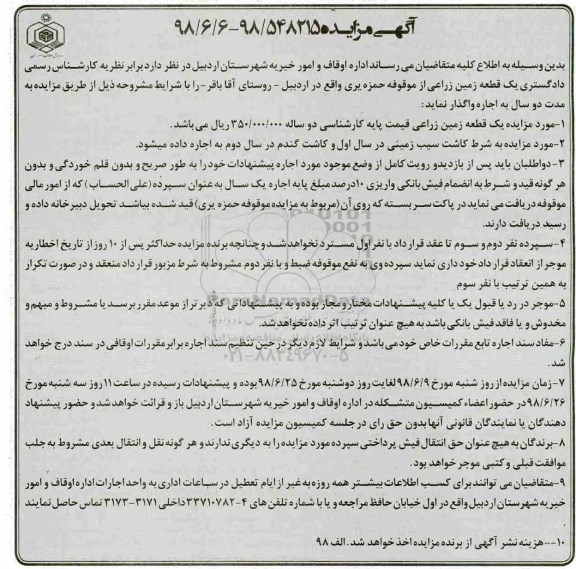 آگهی مزایده ۹۸/۵۴۸۲۱۵-۹۸/۶/۶
بدین وسیله به اطلاع کلیه متقاضیان می رساند اداره اوقاف و امور خیریه شهرستان اردبیل در نظر دارد برابر نظریه کارشناس رسمی
دادگستری یک قطعه زمین زراعی از موقوفه حمزه یری واقع در اردبیل - روستای آقا باقر - را با شرایط مشروحه ذیل از طریق مزایده به
مدت دو سال به اجاره واگذار نماید:
۱-مورد مزایده یک قطعه زمین زراعی قیمت پایه کارشناسی دو ساله ۳۵۰/۰۰۰/۰۰۰ ریال می باشد.
۲-مورد مزایده به شرط کاشت سیب زمینی در سال اول و کاشت گندم در سال دوم به اجاره داده میشود.
۳-دواطلبان باید پس از بازدید و رویت کامل از وضع موجود مورد اجاره پیشنهادات خود را به طور صریح و بدون قلم خوردگی و بدون
هر گونه قید و شرط به انضمام فیش بانکی واریزی ۱۰درصد مبلغ پایه اجاره یک سال به عنوان سپرده (علی الحساب) که از امور مالی
موقوفه دریافت می نماید در پاکت سر بسته که روی آن (مربوط به مزایده موقوفه حمزه یری) قید شده بیاشد تحویل دبیرخانه داده و
رسید دریافت دارند.
۴-سپرده نفر دوم و سوم تا عقد قرار داد با نفر اول مسترد نخواهد شد و چنانچه برنده مزایده حداکثر پس از ۱۰ روز از تاریخ اخطاریه
موجر از انعقاد قرار داد خود داری نماید سپرده وی به نفع موقوفه ضبط و با نفر دوم مشروط به شرط مزبور قرار داد منعقد و در صورت تکرار
به همین ترتیب با نفر سوم
۵-موجر در رد یا قبول یک یا کلیه پیشنهادات مختار و مجاز بوده و به پیشنهاداتی که دیر تر از موعد مقرر برسد یا مشروط و مبهم و
مخدوش و یا فاقد فیش بانکی باشد به هیچ عنوان ترتیب اثر داده نخواهد شد.
۶-مفاد سند اجاره تابع مقررات خاص خود می باشد و شرایط لازم دیگر در حین تنظیم سند اجاره برابر مقررات اوقافی در سند درج خواهد
شد.
۷-زمان مزایده از روز شنبه مورخ ۹۸/۶/۹ لغایت روز دوشنبه مورخ ۹۸/۶/۲۵ بوده و پیشنهادات رسیده در ساعت ۱۱ روز سه شنبه مورخ
۹۸/۶/۲۶ در حضور اعضاء کمیسیون متشکله در اداره اوقاف و امور خیریه شهرستان اردبیل باز و قرائت خواهد شد و حضور پیشنهاد
دهندگان یا نمایندگان قانونی آنها بدون حق رای در جلسه کمیسیون مزایده آزاد است.
۸-برندگان به هیچ عنوان حق انتقال فیش پرداختی سپرده مورد مزایده را به دیگری ندارند و هر گونه نقل و انتقال بعدی مشروط به جلب
موافقت قبلی و کتبی موجر خواهد بود.
۹-متقاضیان می توانند برای کسب اطلاعات بیشتر همه روزه به غیر از ایام تعطیل در ساعات اداری به واحد اجارات اداره اوقاف و امور
خیریه شهرستان اردبیل واقع در اول خیابان حافظ مراجعه و یا با شماره تلفن های ۴-۳۳۷۱۰۷۸۲ داخلی ۳۱۷۱-۳۱۷۳ تماس حاصل نمایند
۱۰--هزینه نشر آگهی از برنده مزایده اخذ خواهد شد. الف ۹۸
۰۲۱-۸۸۳۴۹۶۷۰-۵